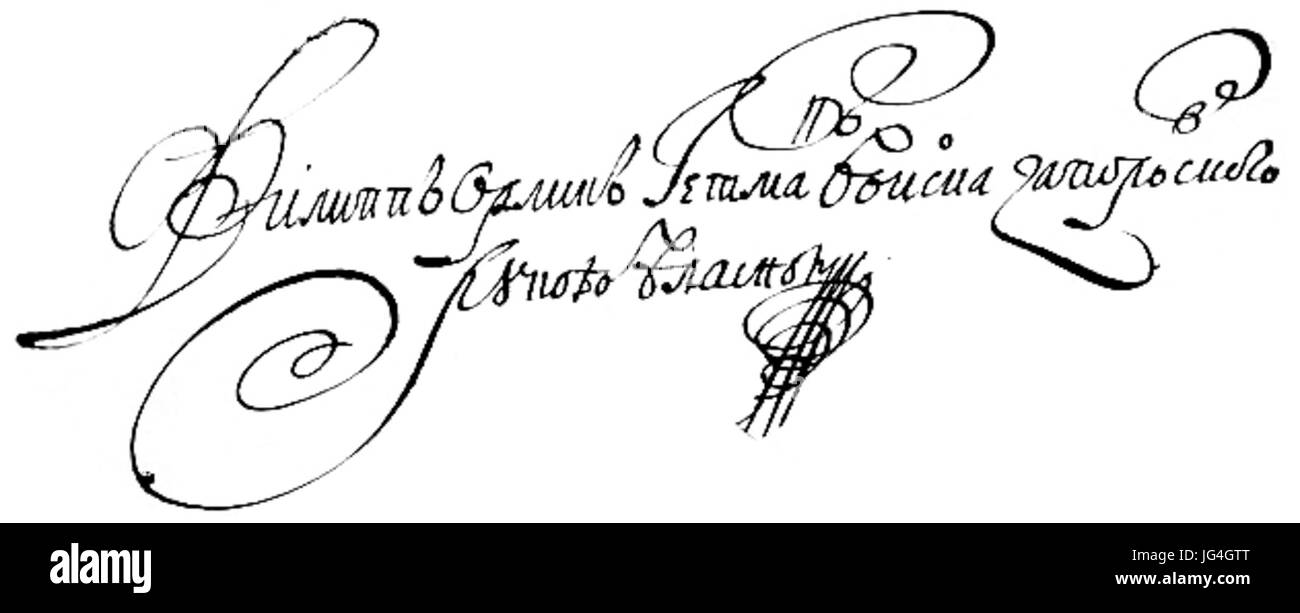 Філиппъ Орликъ Гетманъ Войска Запорозского
рукою власною
alamy
Image ID: JG4GTT
www.alamy.com